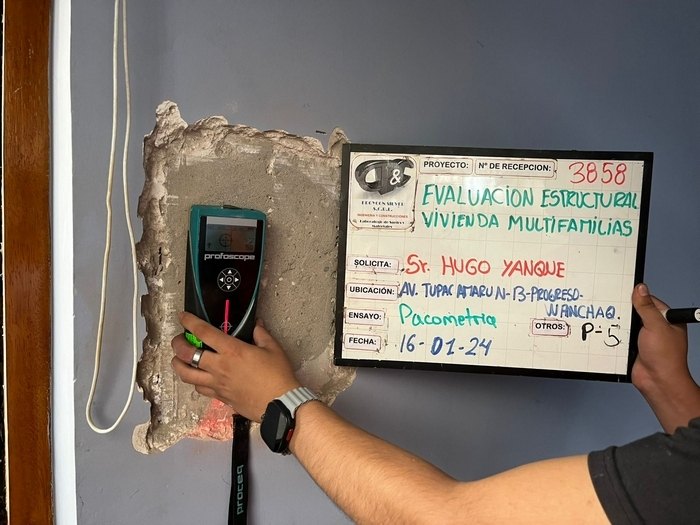 profoscope
proceq
PROYECTO: N° DE RECEPCION: 3858
EVALUACION ESTRUCTURAL
VIVIENDA MULTIFAMILIAS
S.C.R.L.
INGENIERIA Y CONSTRUCCIONES
Laboratorio de Suelos y
Materiales
SOLICITA: Sr. HUGO YANQUE
UBICACIÓN: AV. TUPAC AMARU N-13-PROGRESO-
WANCHAQ.
ENSAYO: Pacometria
OTROS: P-5
FECHA: 16-01-24